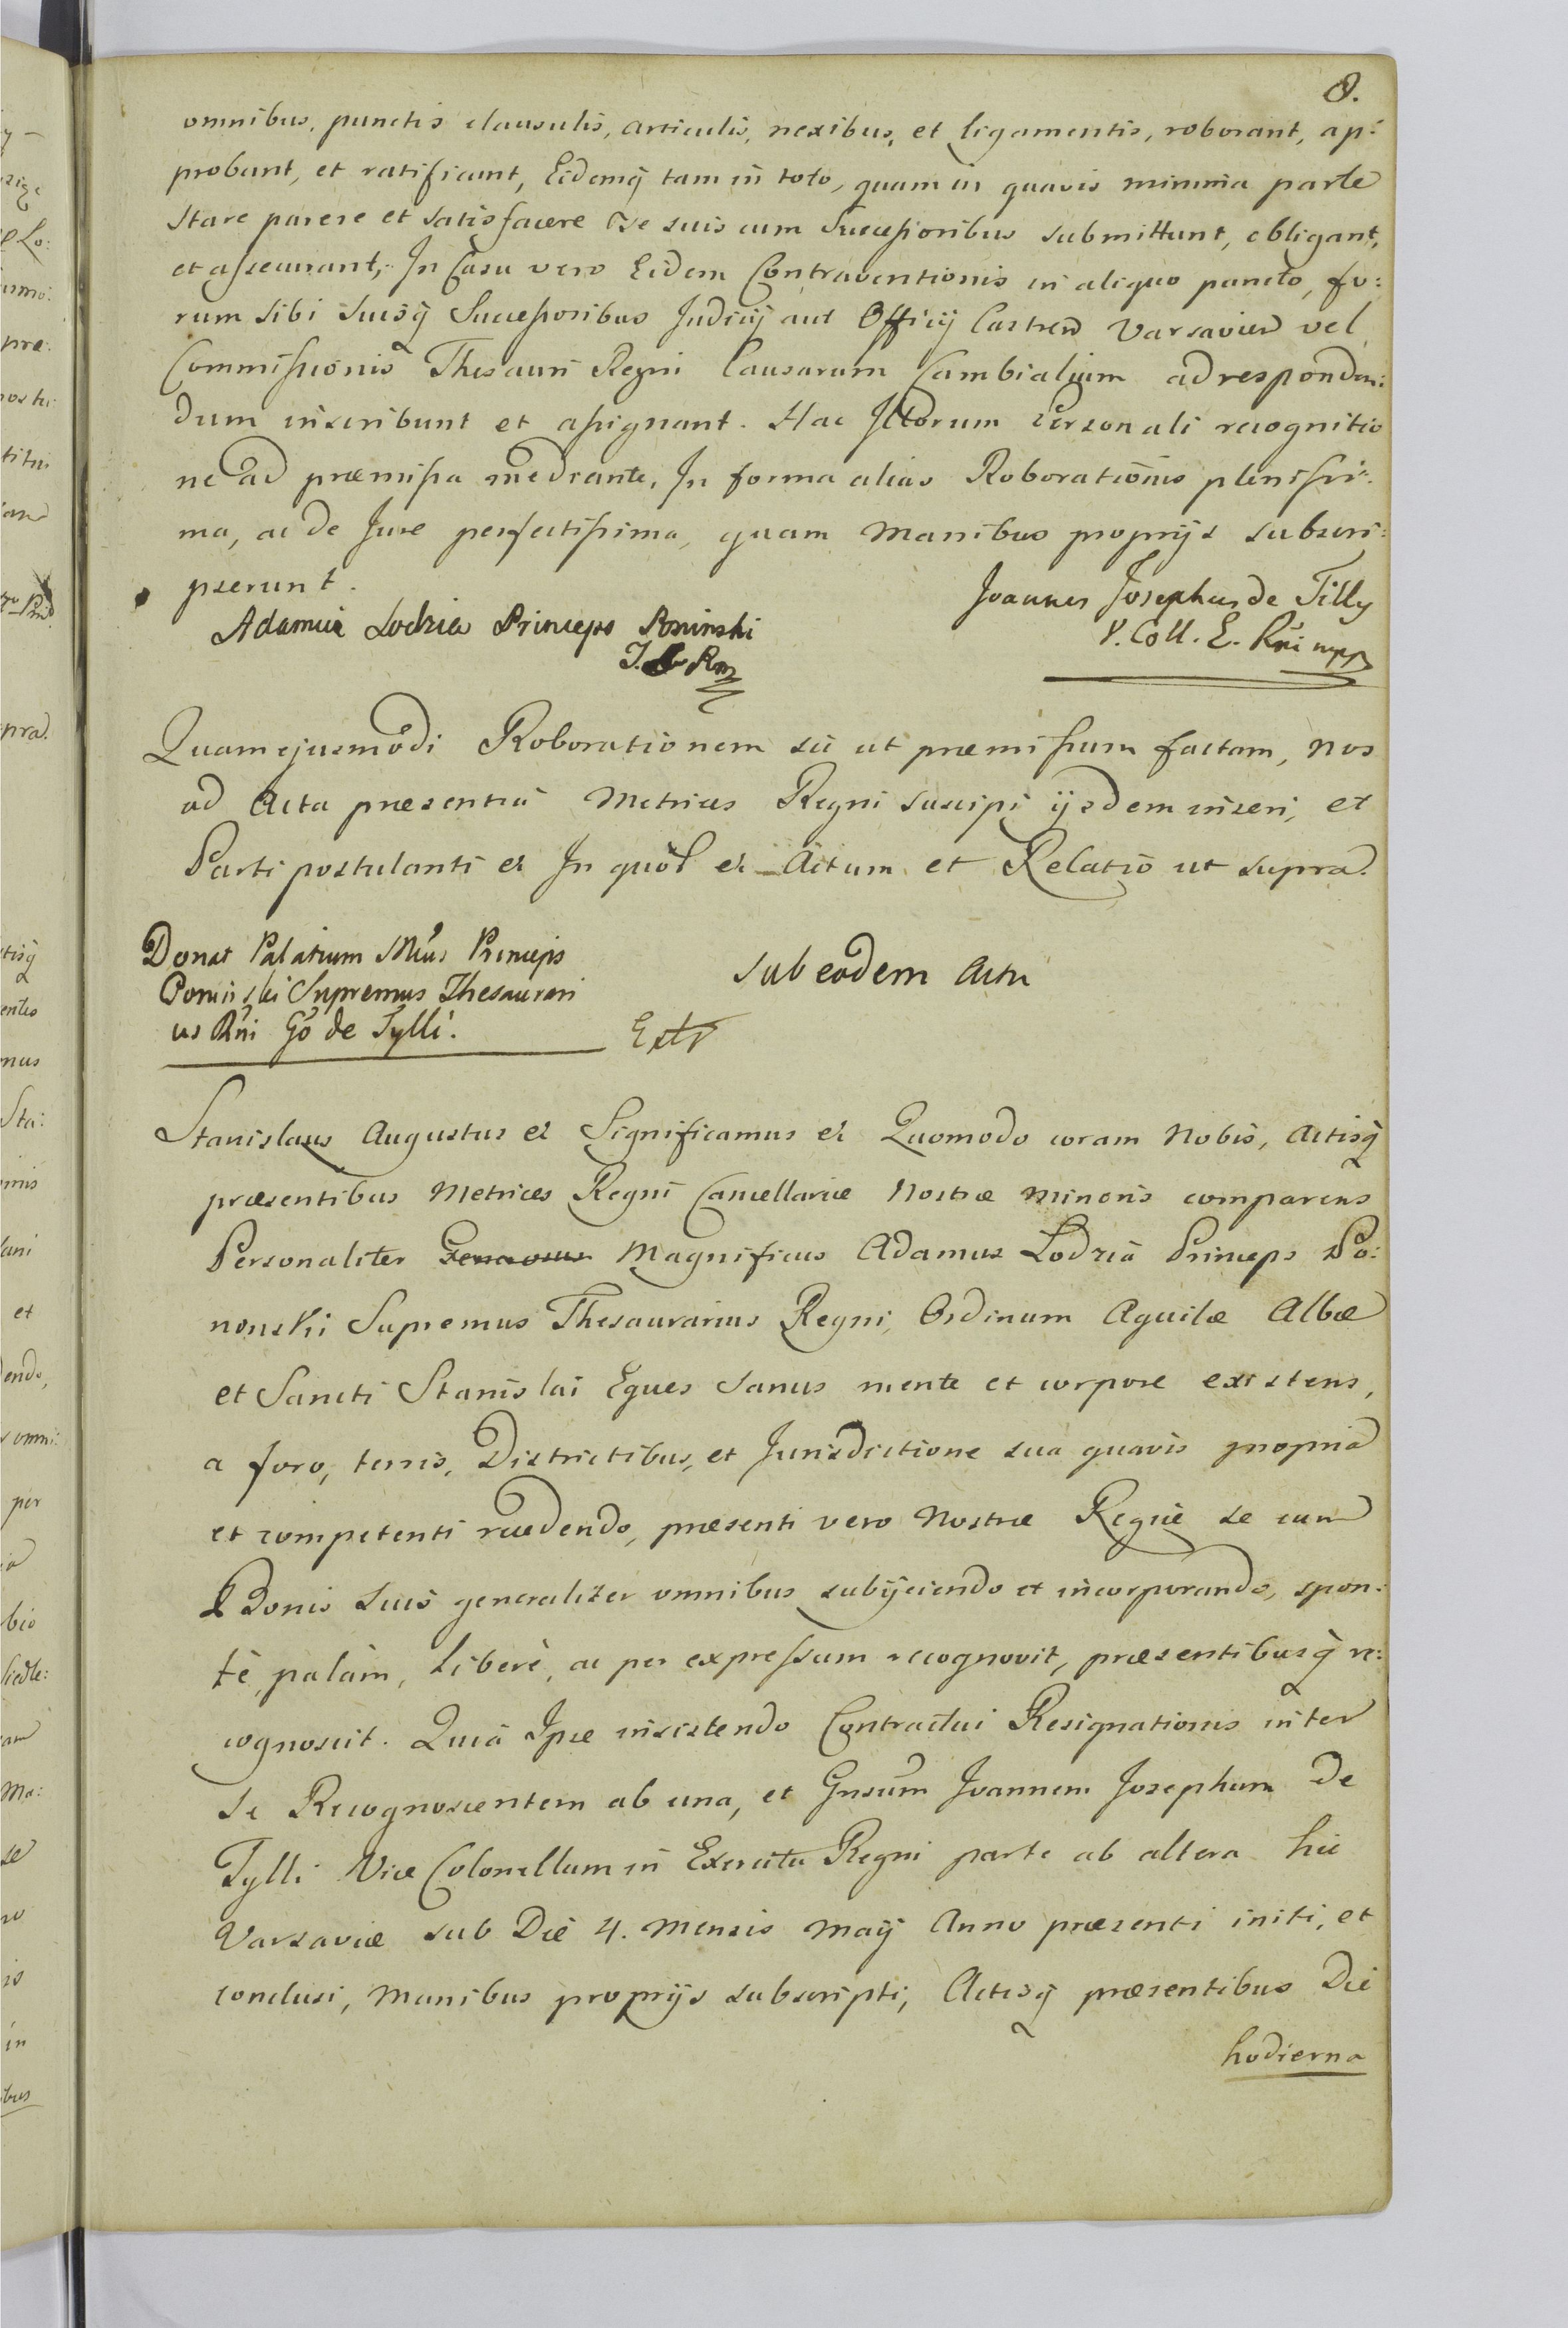 8.
omnibus, punctis clausulis, articulis, nexibus, et ligamentis, roborant, ap:
probant, et ratificant, Eidemq tam in toto, quam in quavis minima parte
stare parere et satisfacere se suis cum Successoribus submittunt, obligant,
et assecurant, In Casu vero Eidem Contraventionis in aliquo puncto, fo:
rum sibi suisq Successoribus Judicij aut Officij Castren Varsavien vel
Commissionis Thesauri Regni Causarum Cambialium ad responden:
dum inscribunt et assignant. Hac Ittorum Personali recognitio
ne ad præmissa mediante, In forma alias Roborationis plenissi:
ma, ac de Jure perfectissima, quam Manibus proprijs subscri:
pserunt.
Joannes Josephus de Tilly
V. Coll. E. Rni mpp
Adamus Lodzia Princeps Poninski
Quam ejusmodi Roborationem sic ut præmissum factam, Nos
ad Acta præsentia Metrices Regni suscipi ijsdem inseri, et
Parti postulanti et In quor et Actum et Relatio ut supra.
Donat Palatium Mcus Princeps
Poninski Supremus Thesaurari
us Rni Go de Tylli.
Sub eodem Actu
Extr
Stanislaus Augustus et Significamus et Quomodo coram Nobis, Actisq
præsentibus Metrices Regni Cancellariæ Nostræ Minoris comparens
Personaliter Generosus Magnificus Adamus Lodzia Princeps Po:
nonski Supremus Thesaurarius Regni, Ordinum Aquilæ Albæ
et Sancti Stanislai Eques sanus mente et corpore existens,
a foro, terris, Districtibus, et Jurisdictione sua quavis propria
et competenti recedendo, præsenti vero Nostræ Regiæ se cum
Bonis suis generaliter omnibus subijciendo et incorporando, spon:
tè, palàm, liberè, ac per expressum recognovit, præsentibusq re:
cognoscit. Quia Ipse insistendo Contractui Resignationis inter
Se Recognoscentem ab una, et Gnsum Joannem Josephum De
Tylli Vice Colonellum in Exercitu Regni parte ab altera hic
Varsaviæ sub Die 4. Mensis Maij Anno præsenti initi, et
conclusi, Manibus proprijs subscripti, Actisq præsentibus Die
hodierna